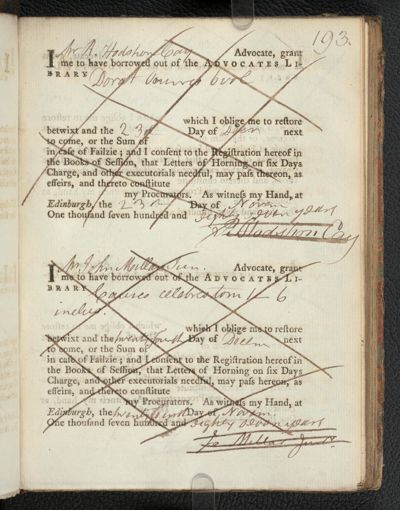 193.
I Mr R. Hodshon Cay Advocate, grant
me to have borrowed out of the ADVOCATES LI-
BRARY Dorat Oeuvres
which I oblige me to restore
betwixt and the 23d Day of Decr next
to come, or the Sum of
in case of Failzie; and I consent to the Registration hereof in
the Books of Session, that Letters of Horning on six Days
Charge, and other executorials needful, may pass thereon, as
effeirs, and thereto constitute
my Procurators. As witness my Hand, at
Edinburgh, the 23d Day of Novem
One thousand seven hundred and eighty seven years
R. Hodshon Cay
I Mr John Millar Jun. Advocate, grant
me to have borrowed out of the ADVOCATES LI-
BRARY Causes celebres tom 4 6
inclus.
which I oblige me to restore
betwixt and the twenty fourth Day of Decem next
to come, or the Sum of
in case of Failzie; and I consent to the Registration hereof in
the Books of Session, that Letters of Horning on six Days
Charge, and other executorials needful, may pass hereon, as
effeirs, and thereto constitute
my Procurators. As witness my Hand, at
Edinburgh, the Day of Novem.
One thousand seven hundred and eighty seven years
Jo Millar Junr.